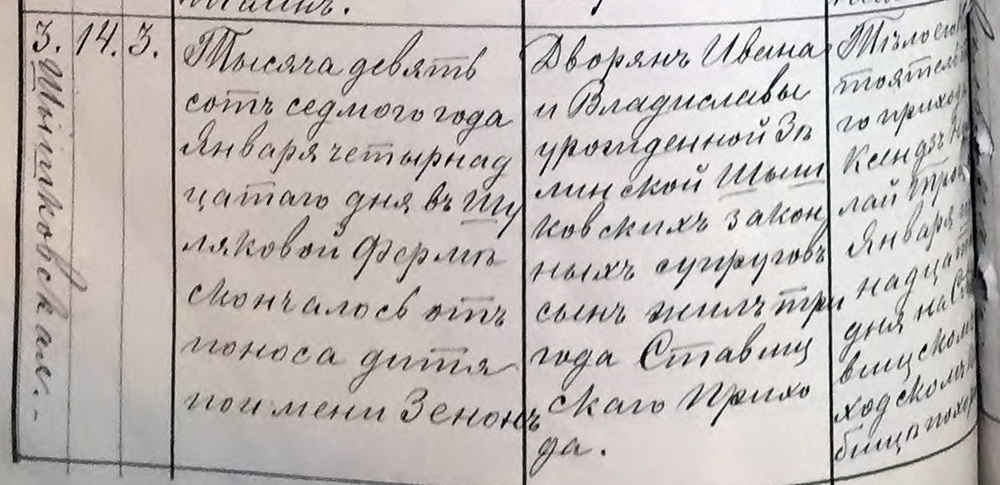 3. 14. 3.
Шышковская. -
Тысяча девять
сотъ седмого года
Января четырнад
цатаго дня въ Шу
ляковой Фермѣ
скончалось отъ
поноса дитя
по имени Зенонъ
Дворянъ Ивана
и Владиславы
урожденной Зѣ
линской Шыш
ковскихъ закон
ныхъ супруговъ
сынъ жилъ три
года Ставищ
скаго Прихо
да.
Тѣло
го приход
Ксендзъ
лай
Января
надцат
дня на Ста
вищском
ходском
бищѣ похор